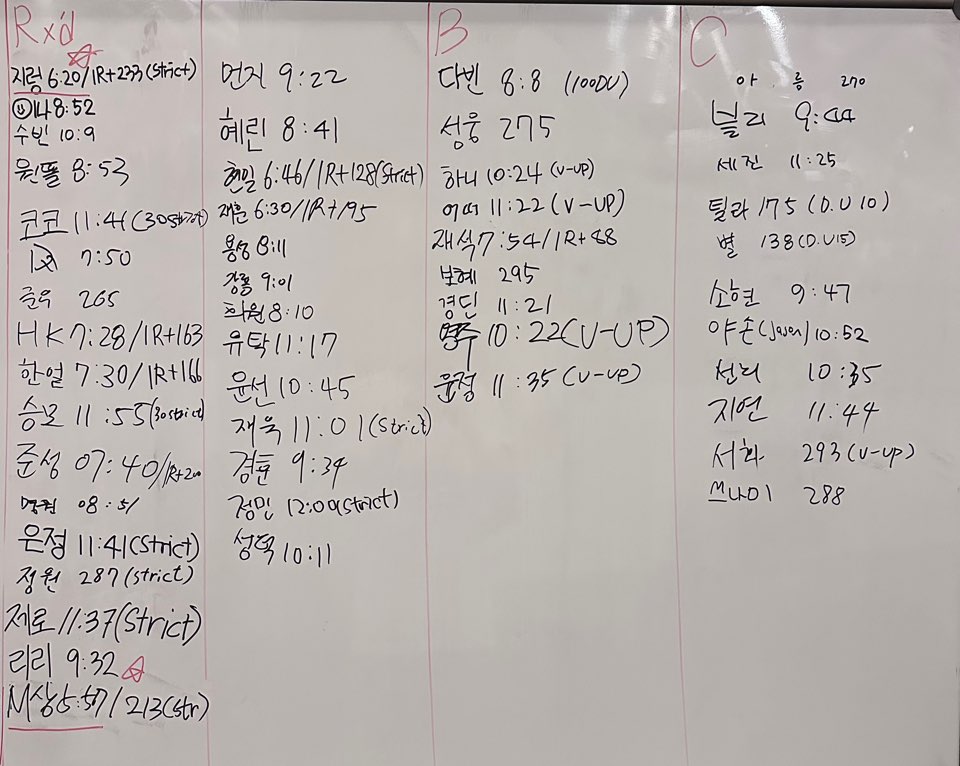 Rx'd
지렁 6:20/1R+233(Strict)
나 8:52
수빈 10:9
원똘 8:53
코코 11:41(30strict)
7:50
준우 265
HK 7:28/1R+163
한얼 7:30/1R+166
승모 11:55(30strict)
준성 07:40/1R+200
08:51
은정 11:41(Strict)
정원 287(strict)
제로 11:37(Strict)
리리 9:32
M상 5:57/213(Str)
먼지 9:22
혜린 8:41
현일 6:46/1R+128(Strict)
재훈 6:30/1R+195
용성 8:11
강룡 9:01
희원 8:10
유탁 11:17
윤선 10:45
재욱 11:01(Strict)
경훈 9:34
정민 12:09(Strict)
성혁 10:11
B
다빈 8:8 (100DU)
성웅 275
하니 10:24 (V-UP)
어떠 11:22 (V-UP)
재석 7:54/1R+88
보혜 295
경민 11:21
10:22(V-UP)
윤정 11:35 (V-UP)
C
아롱 270
블리 9:44
세진 11:25
틸라 175 (D.U 10)
별 138(D.U15)
소현 9:47
야손(Jason) 10:52
선리 10:35
지연 11:44
서화 293(V-UP)
쯔나미 288